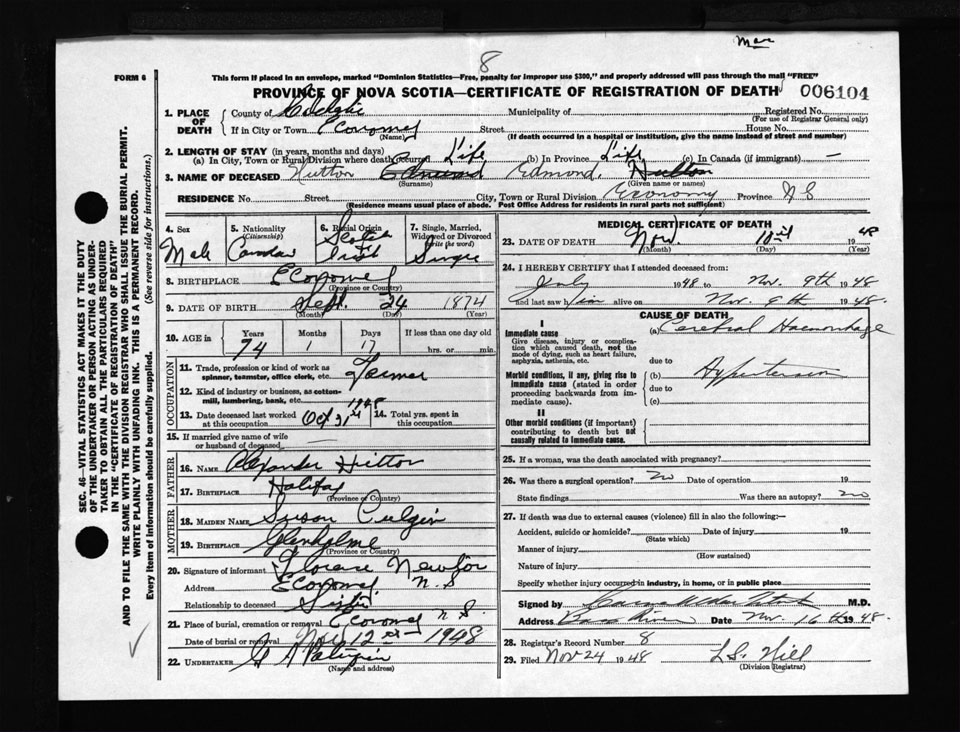 Mar
8
FORM 6
This form if placed in an envelope, marked "Dominion Statistics—Free, penalty for improper use $300," and properly addressed will pass through the mail "FREE"
PROVINCE OF NOVA SCOTIA—CERTIFICATE OF REGISTRATION OF DEATH 006104
1. PLACE OF DEATH
County of Municipality of Registered No.
(For use of Registrar General only)
If in City or Town Economy Street House No.
(Name) (If death occurred in a hospital or institution, give the name instead of street and number)
2. LENGTH OF STAY (in years, months and days)
(a) In City, Town or Rural Division where death occurred Life (b) In Province Life (c) In Canada (if immigrant) —
3. NAME OF DECEASED Hutton Edmund Edmond. Hutton
(Surname) (Given name or names)
RESIDENCE No. Street City, Town or Rural Division Economy Province N S
(Residence means usual place of abode. Post Office Address for residents in rural parts not sufficient)
4. Sex
Male
5. Nationality
(Citizenship)
6. Racial Origin
Scotch
Irish
7. Single, Married, Widowed or Divorced
(write the word)
Single
8. BIRTHPLACE Economy
(Province or Country)
9. DATE OF BIRTH Sept. 24 1874
(Month) (Day) (Year)
10. AGE in Years Months Days If less than one day old
74 1 17 hrs. or min.
OCCUPATION
11. Trade, profession or kind of work as spinner, teamster, office clerk, etc. Farmer
12. Kind of industry or business, as cotton-mill, lumbering, bank, etc.
13. Date deceased last worked at this occupation Oct 31st 1948
14. Total yrs. spent in this occupation
15. If married give name of wife or husband of deceased
FATHER
16. NAME Alexander Hutton
17. BIRTHPLACE Halifax
(Province or Country)
MOTHER
18. MAIDEN NAME Susan Culgin
19. BIRTHPLACE Glenholme
(Province or Country)
20. Signature of informant Florence
Address Economy N. S
Relationship to deceased Sister
21. Place of burial, cremation or removal Economy N S.
Date of burial or removal Nov 12 1948
22. UNDERTAKER
(Name and address)
MEDICAL CERTIFICATE OF DEATH
23. DATE OF DEATH Nov. 10th 1948
(Month) (Day) (Year)
24. I HEREBY CERTIFY that I attended deceased from:
July 1948 to Nov. 9th 1948
and last saw him alive on Nov. 9th 1948.
CAUSE OF DEATH
I
Immediate cause (a) Cerebral Haemorrhage
Give disease, injury or complication which caused death, not the mode of dying, such as heart failure, asphyxia, asthenia, etc.
due to
Morbid conditions, if any, giving rise to immediate cause (stated in order proceeding backwards from immediate cause).
(b) Hypertension
due to
(c)
II
Other morbid conditions (if important) contributing to death but not causally related to immediate cause.
25. If a woman, was the death associated with pregnancy?
26. Was there a surgical operation? no Date of operation 19
State findings Was there an autopsy? no
27. If death was due to external causes (violence) fill in also the following:—
Accident, suicide or homicide? Date of injury 19
(State which)
Manner of injury
(How sustained)
Nature of injury
Specify whether injury occurred in industry, in home, or in public place
Signed by M.D.
Address Bass River Date Nov. 16th 1948.
28. Registrar's Record Number 8
29. Filed Nov 24 1948 Hill
(Division Registrar)
SEC. 46—VITAL STATISTICS ACT MAKES IT THE DUTY
OF THE UNDERTAKER OR PERSON ACTING AS UNDERTAKER
TO OBTAIN ALL THE PARTICULARS REQUIRED
IN THE "CERTIFICATE OF REGISTRATION OF DEATH"
AND TO FILE THE SAME WITH THE DIVISION REGISTRAR WHO SHALL ISSUE THE BURIAL PERMIT.
WRITE PLAINLY WITH UNFADING INK. THIS IS A PERMANENT RECORD.
Every item of information should be carefully supplied. (See reverse side for instructions.)